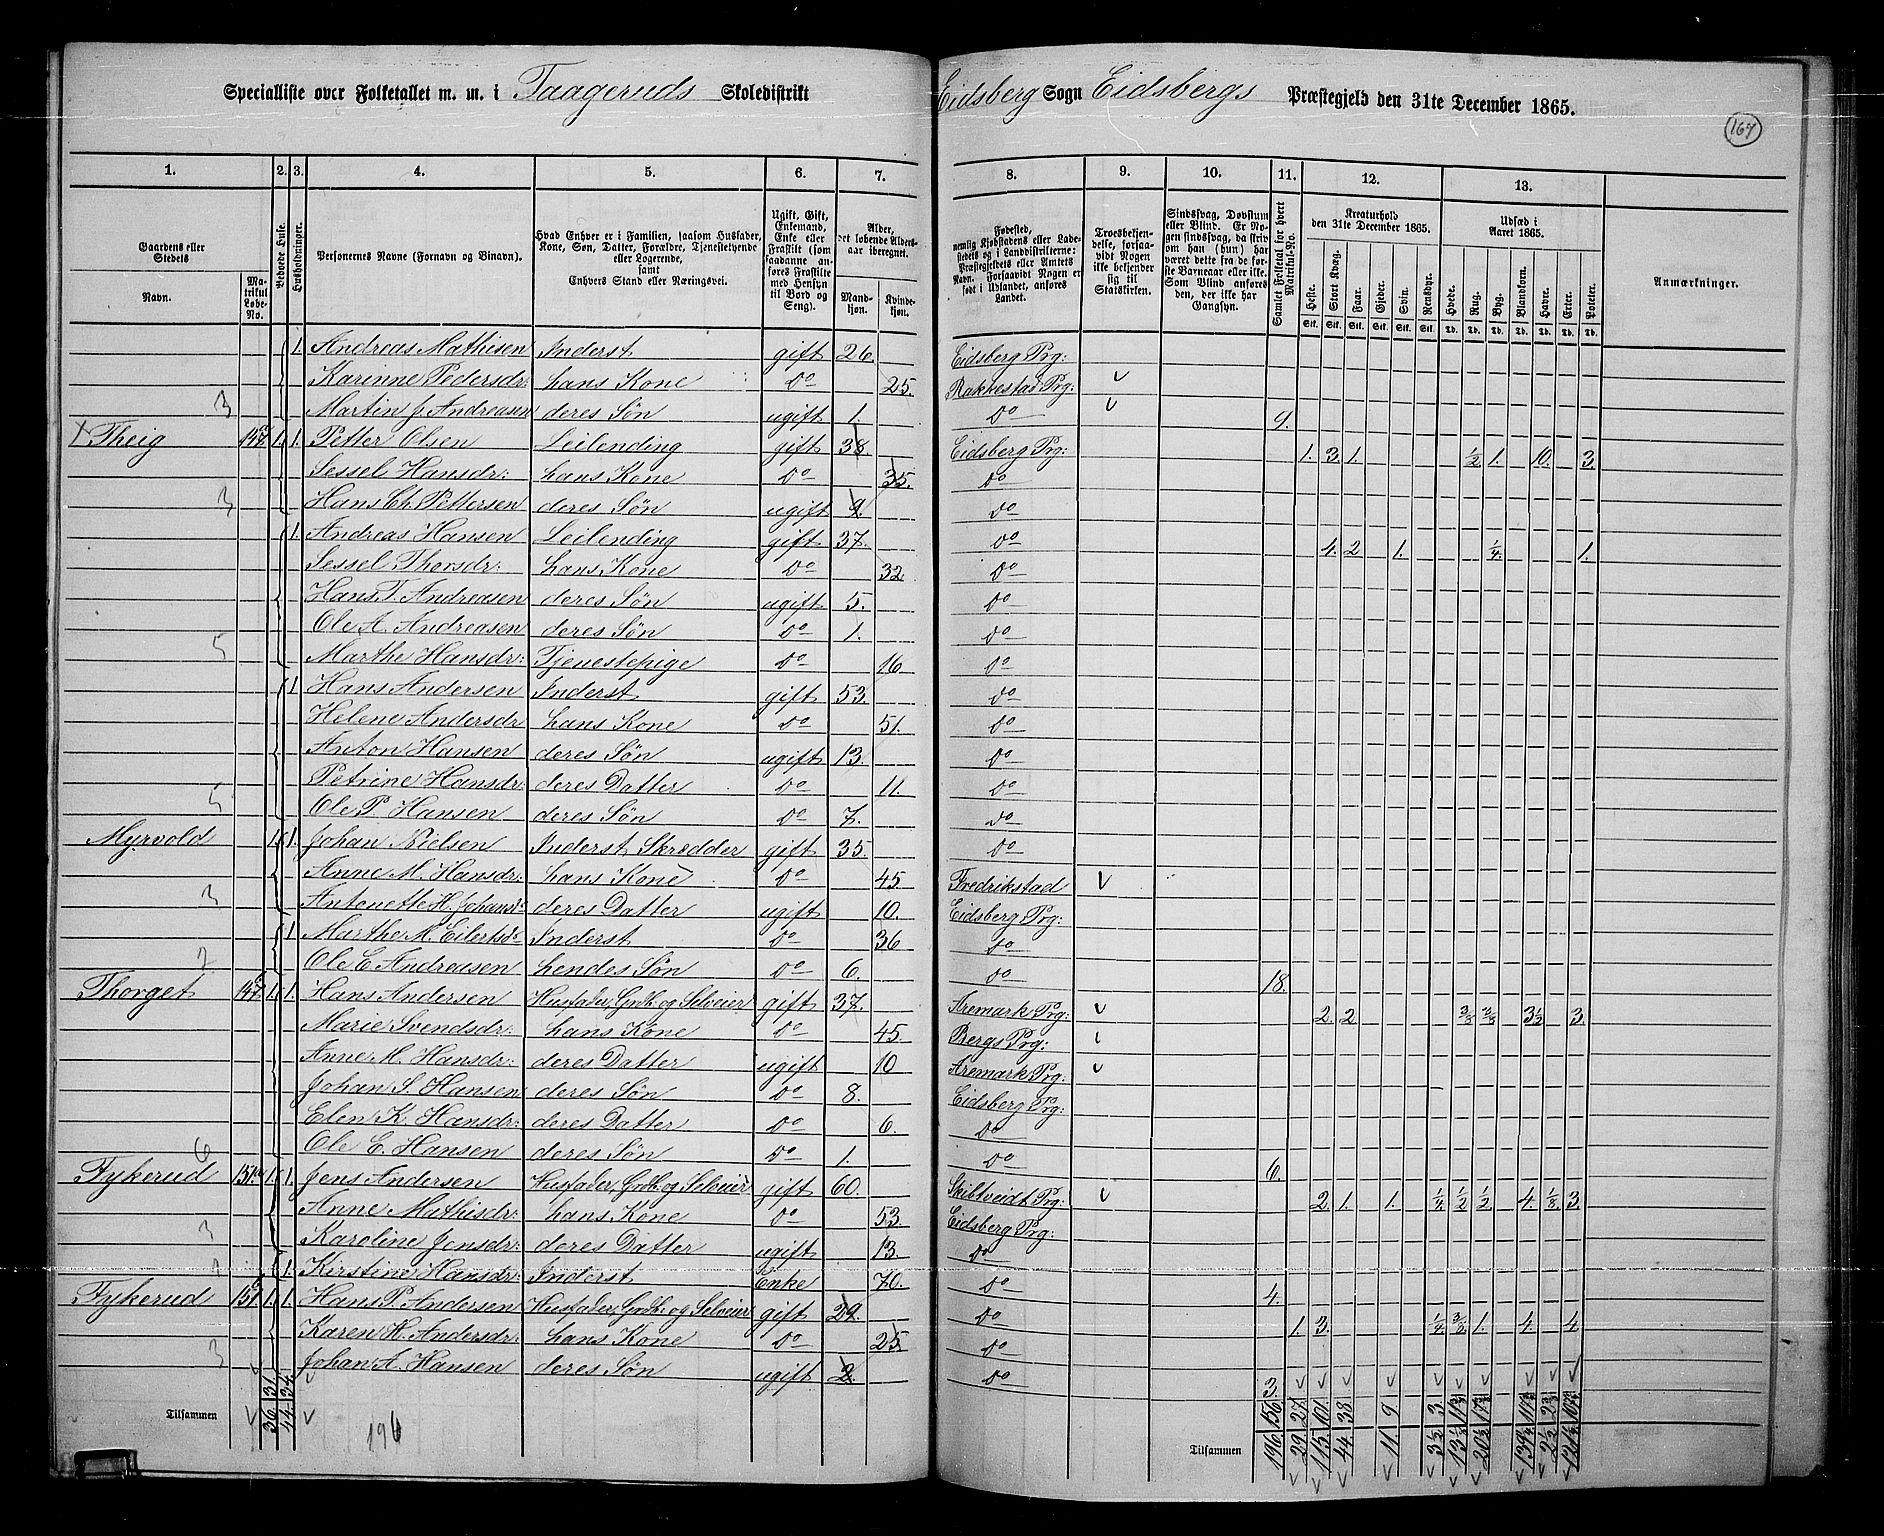 Specialliste over Folketallet m. m. i Taageruds Skoledistrikt Eidsberg Sogn Eidsbergs Præstegjeld den 31te December 1865.
167
1. 2. 3. 4. 5. 6. 7. 8. 9. 10. 11. 12. 13.
Gaardens eller Stedets
Navn.
Matrikul Løbe-No.
Beboede Huse.
Husholdninger.
Personernes Navne (Fornavn og Binavn).
Hvad Enhver er i Familien, saasom Husfader, Kone, Søn, Datter, Forældre, Tjenestetyende eller Logerende, samt Enhvers Stand eller Næringsvei.
Ugift, Gift, Enkemand, Enke eller Fraskilt (som saadanne anføres Fraskilte med Hensyn til Bord og Seng).
Alder, det løbende Aldersaar iberegnet.
Mandkjøn. Kvindekjøn.
Fødested, nemlig Kjøbstadens eller Ladestedets og i Landdistrikterne: Præstegjeldets eller Amtets Navn. Forsaavidt Nogen er født i Udlandet, anføres Landet.
Troesbekjendelse, forsaavidt Nogen ikke bekjender sig til Statskirken.
Sindssvag, Døvstum eller Blind. Er Nogen sindssvag, da skriv om han (hun) har været dette fra de første Barneaar eller ikke. Som Blind anføres den, der ikke har Gangsyn.
Samlet Folketal for hvert Matrikul-No.
Kreaturhold den 31te December 1865.
Heste. Stort Kvæg. Faar. Gjeder. Svin. Rensdyr.
Udsæd i Aaret 1865.
Hvede. Rug. Byg. Blandkorn. Havre. Erter. Poteter.
Anmærkninger.
1. Andreas Mathisen Inderst gift 26. Eidsberg Prg:
Karinne Pedersdr: hans Kone Do 25. Rakkestad Prg:
3 Martin J. Andreasen deres Søn ugift 1. Do 9.
Theig 1. 1. Petter Olsen Leilending gift 38. Eidsberg Prg: 1. 3. 1. 1/2 1. 10. 3.
Sessel Hansdr: hans Kone Do 35. Do
3 Hans Ch. Pettersen deres Søn ugift 9. Do
1. Andreas Hansen Leilending gift 37. Do 4. 2 1. 1/4 1.
Sessel Thorsdr: hans Kone Do 32 Do
Hans T. Andreasen deres Søn ugift 5. Do
Ole A. Andreasen deres Søn Do 1. Do
5 Marthe Hansdr: Tjenestepige Do 16 Do
1 Hans Andersen Inderst gift 53. Do
Helene Andersdr hans Kone Do 51. Do
Anton Hansen deres Søn ugift 13. Do
Petrine Hansdr: deres Datter Do 11. Do
5 Ole P. Hansen deres Søn Do 7. Do
Myrvold 1. 1. Johan Nielsen Inderst Skrædder gift 35. Do
Anne M. Hansdr: hans Kone Do 45 Fredrikstad
3 Antonette H. Johansd: deres Datter ugift 10. Eidsberg Prg:
1 Marthe M. Eilertsdr Inderst Do 36 Do
2 Ole E. Andreasen hendes Søn Do 6. Do 18.
Thorget 1. 1. Hans Andersen Husfader, Grdb. og Selveier gift 37. Aremark Prg: 2. 2 3/8 3/8 3 1/2 3.
Marie Svendsdr: hans Kone Do 45. Bergs Prg:
Anne M. Hansdr: deres Datter ugift 10 Aremark Prg:
Johan S. Hansen deres Søn Do 8. Eidsberg Prg:
Elen K. Hansdr: deres Datter Do 6. Do
6 Ole E. Hansen deres Søn Do 1. Do 6.
Fykerud 1. 1. Jens Andersen Husfader, Grdb. og Selveier gift 60. Skibtveidt Prg: 2. 1. 1. 1/4 1/2 1/2 4. 1/8 3
Anne Mathisdr: hans Kone Do 53. Eidsberg Prg:
3 Karoline Jensdr: deres Datter ugift 13. Do
1 1. Kirstine Hansdr: Inderst Enke 70. Do 4.
Fykerud 1. 1. Hans P. Andersen Husfader, Grdb. og Selveier gift 29. Do 1. 3. 1/4 3/8 1. 4. 4.
Karen H. Andersdr: hans Kone Do 25 Do
3 Johan A. Hansen deres Søn ugift 2. Do 3.
31. 34. 156 27 101 38 9 3.
Tilsammen 36. 44. 196 Tilsammen 196 29 115 44. 11. 3 1/2 13 1/2 20 1/2 2 1/2